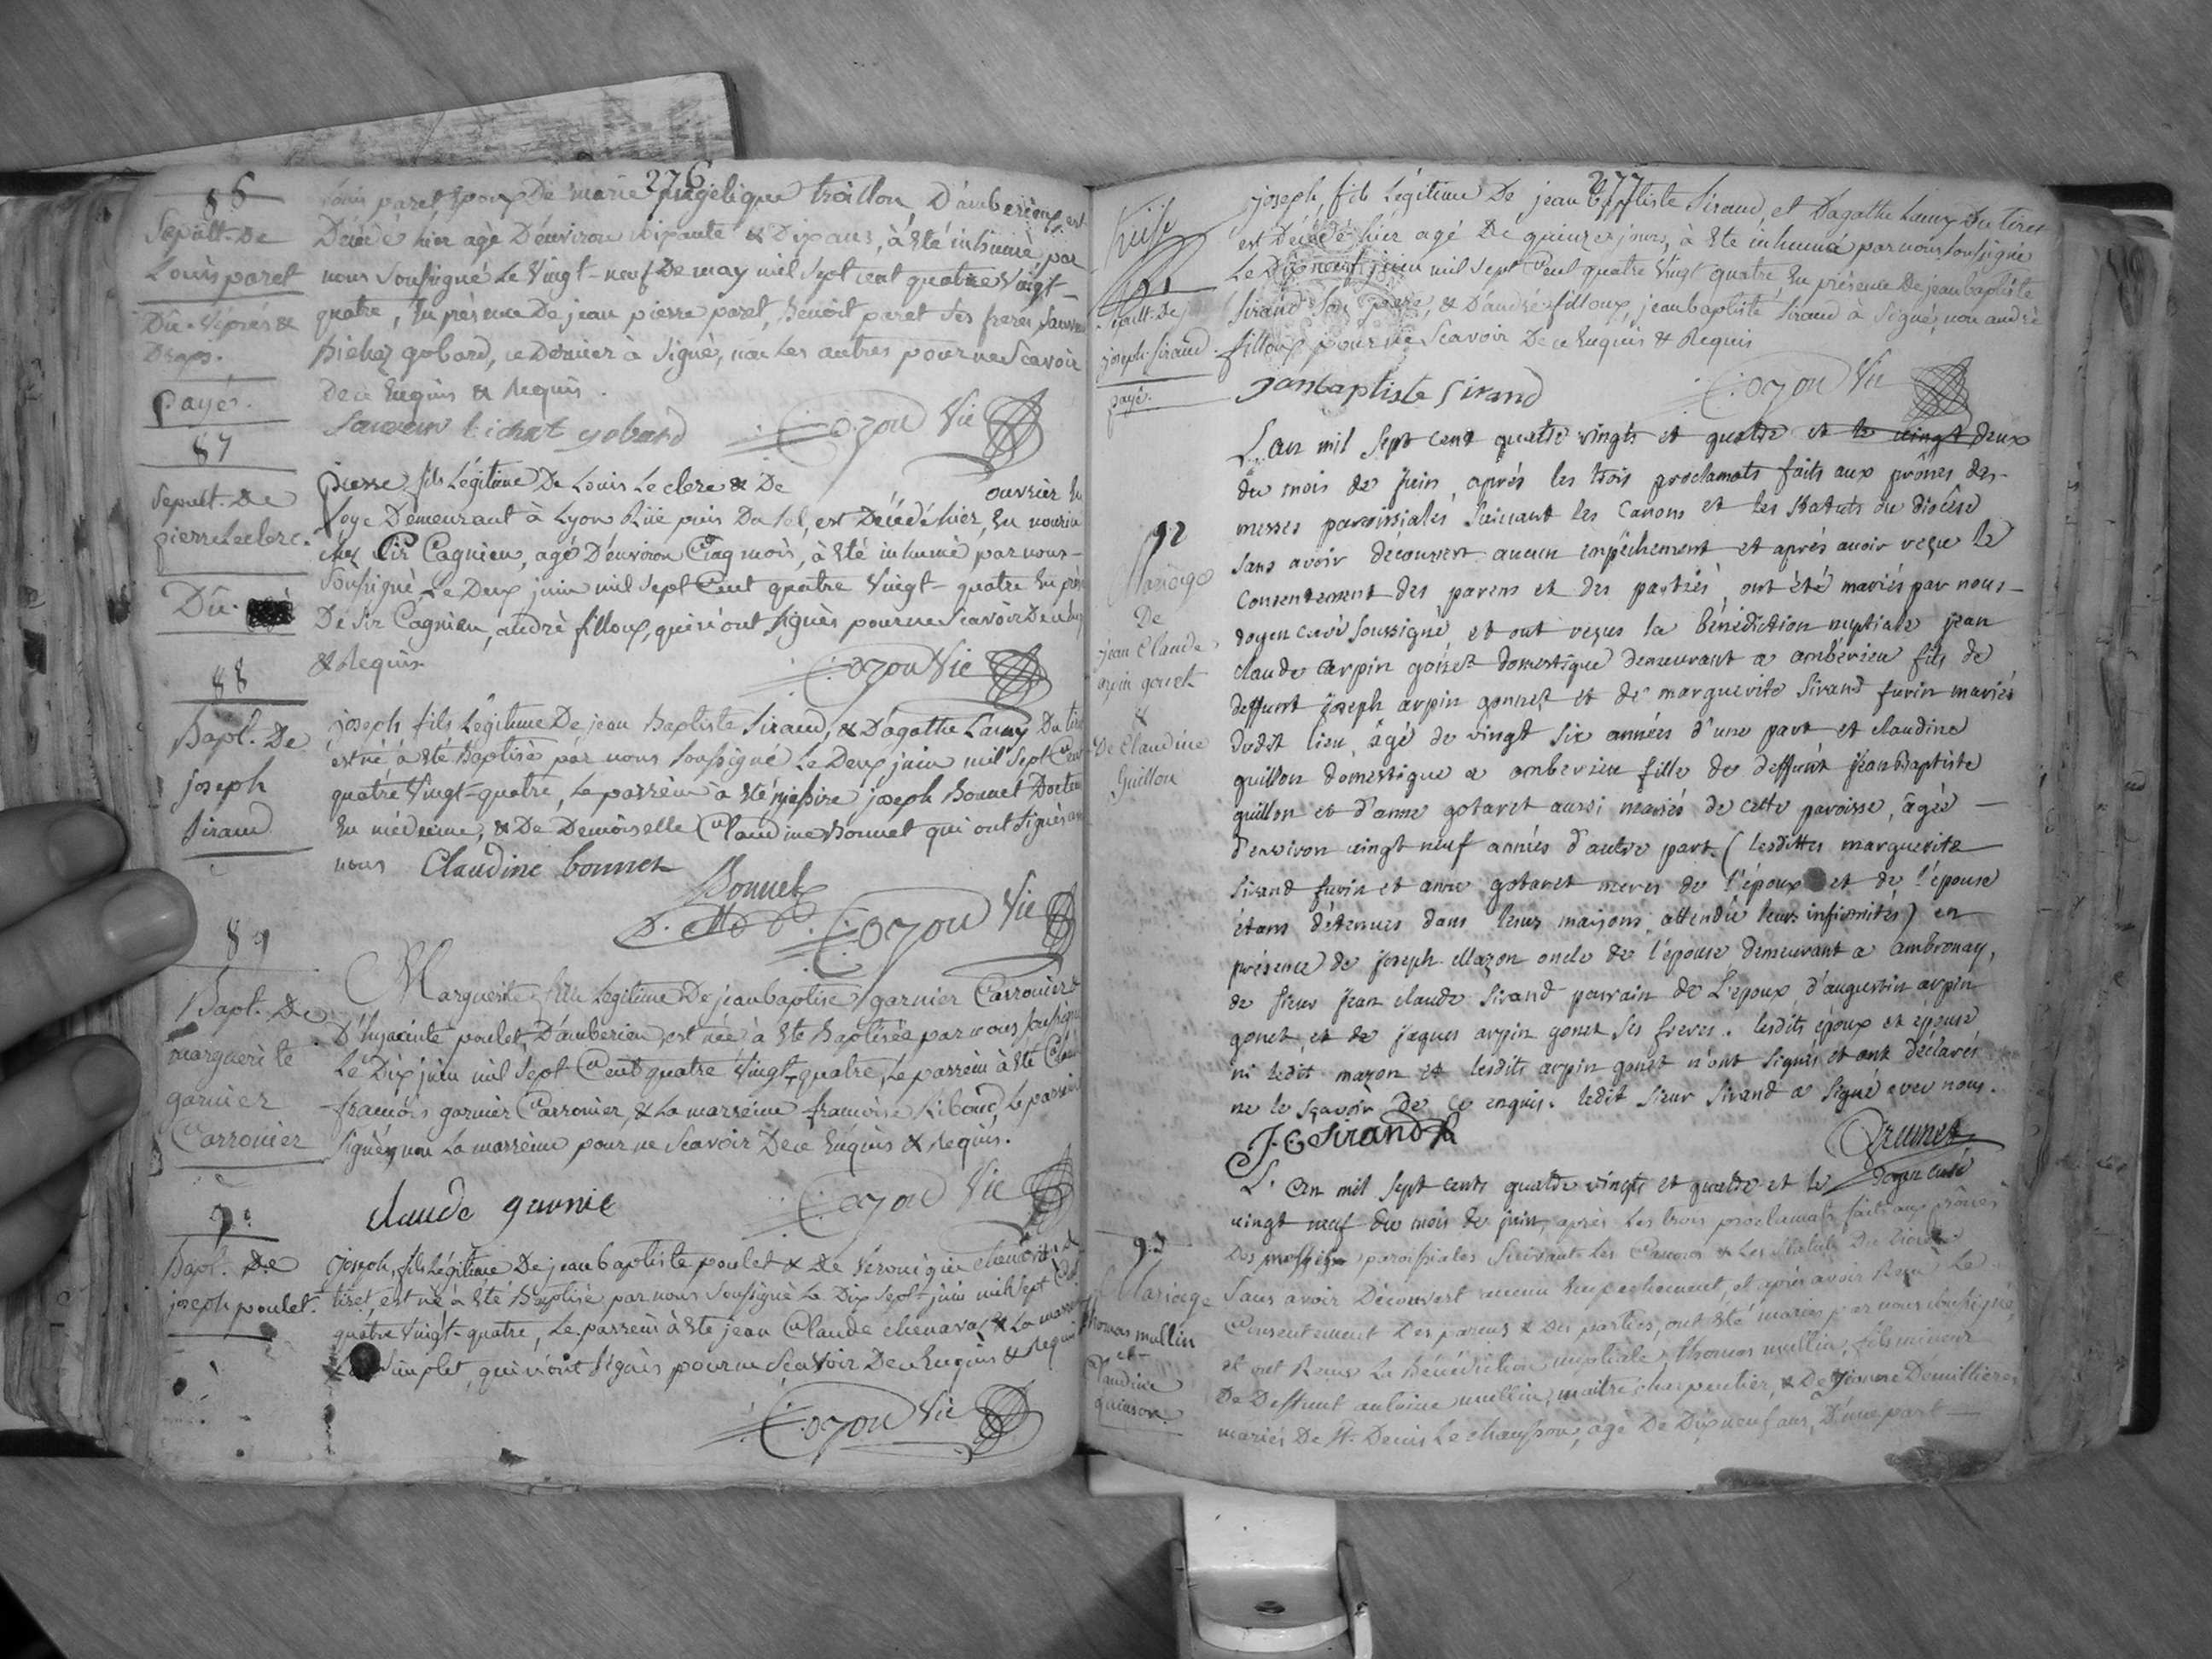 276
86
Sepult. De
Louis paret
Dû. Veprés &
Draps.
Payé.
Louis paret Epoux De Marie angelique troillon D'amberieux est
Décédé hier agé D'environ soixante & Dix ans, à été inhumé par
nous soussigné Le Vingt-neuf De may mil sept cent quatre Vingt-
quatre, En présence De jean pierre paret, Benoit paret ses freres,
bichat gobard, ce Dernier à signé, non Les autres pour ne Scavoir
De ce Enquis & Requis.
bichat gobard Cozon Vic
87
Sepult. de
pierre Leclerc.
Dû.
Pierre fils Légitime De Louis Leclerc & De ouvrier En
soye Demeurant à Lyon Rüe puis Du Sel, est Décédé hier, En nourice
chez Sir Cagnieu, agé D'environ Cinq mois, à été inhumé par nous-
soussigné, Le Deux juin mil sept Cent quatre Vingt-quatre En pré
De Sir Cagnieu, andré filloux, qui n'ont signés pour ne Scavoir De ce Enq
& Requis
Cozon Vic
88
Bapt. De
joseph
Siraud
joseph fils Légitime De jean Baptiste Siraud, & D'agathe Lamy Du tiret
est né à été Baptisé par nous soussigné Le Deux juin mil sept Cent
quatre Vingt-quatre, Le parrein à été messire joseph Bonnet Docteur
En médecine, & De Demoiselle Claudine Bonnet qui ont signés avec
nous Claudine bonnet
Bonnet
Cozon Vic
89
Bapt. De
marguerite
garnier
Carronier
Marguerite fille Legitime De jean baptise garnier Carronier &
D'hyacinte poulet, D'amberieu, est née à été Baptisée par nous soussigné
Le Dix juin mil sept Cent quatre Vingt-quatre, Le parrein à été Claude
francois garnier Carronier, & La marreine francoise Riboud, Le parrein
signé, non La marreine pour ne Scavoir De ce Enquis & Requis.
claude garnie Cozon Vic
90
Bapt. De
joseph poulet.
Joseph, fils Légitime De jean baptiste poulet & De Veronique chenavas du
tiret, est né, à été Baptisé par nous soussigné Le Dix sept juin mil sept Cent
quatre Vingt-quatre, Le parrein à été jean Claude chenavas & La marreine
simplet, qui n'ont signés pour ne Scavoir De ce Enquis & Requis
Cozon Vic
277
91
Sepult. De
joseph Siraud.
payé.
joseph, fils Légitime De jean Baptiste Siraud, et D'agathe Lamy Du tiret
est Décédé hier agé De quinze jours, à été inhumé par nous soussigné
Le Dix neuf juin mil sept Cent quatre Vingt quatre, En présence De jean baptiste
Siraud Son pere, & D'andré filloux, jean baptiste Siraud à signé, non andré
filloux pour ne Scavoir De ce Enquis & Requis
Janbaptiste Sirand Cozon Vic
92
Mariage
De
jean Claude
arpin gonet
&
De Claudine
Guillon
L'an mil sept cent quatre vingts et quatre et le vingt deux
du mois de juin, aprés les trois proclamats faits aux prônes des-
messes paroissiales suivant les Canons et les statuts du diocése
sans avoir découvert aucun empêchement et aprés avoir reçu le
consentement des parens et des parties, ont été mariés par nous-
doyen curé soussigné, et ont reçus la bénédiction nuptiale jean
claude arpin gonet domestique demeurant a ambérieu fils de
deffunt joseph arpin gonnet et de marguerite sirand furin mariés
dudit lieu, âgé de vingt six années d'une part et claudine
guillon domestique a amberieu fille de deffunt jean baptiste
guillon et d'anne gotaret aussi mariés de cette paroisse, âgée —
d'environ vingt neuf années d'autre part. (lesdittes marguerite
sirand furin et anne gotaret meres de l'époux et de l'épouse
étans détenues dans leurs maisons, attendu leurs infirmités) en
présence de joseph Mazon oncle de l'épouse demeurant a ambronay,
de sieur jean claude sirand parrain de L'epoux, d'augustin arpin
gonet, et de jaques arpin gonet ses freres. lesdits époux et épouse
ni ledit mazon et lesdits arpin gonet n'ont signés et ont déclarés
ne le sçavoir de ce enquis. ledit sieur sirand a signé avec nous.
J. C. Sirand Grumet
doyen curé
93
Mariage
thomas mullin
et
Claudine
quinson.
L'an mil sept cents quatre vingts et quatre et le
vingt neuf du mois de juin, après Les trois proclamats faits aux prônes
Des messes paroissiales Suivant Les Canons & Les Statuts Du Diocèse
Sans avoir Découvert aucun Empechement, et après avoir Reçu Le
Consentement Des parens & Des parties, ont été mariés par nous soussigné,
et ont Reçus La Bénédiction nuptiale, thomas mullin, fils mineur
De Deffunt antoine mullin, maitre charpentier, & De Jeanne Demillieres
mariés De St. Denis Le chausson, agé De Dix neuf ans, D'une part —